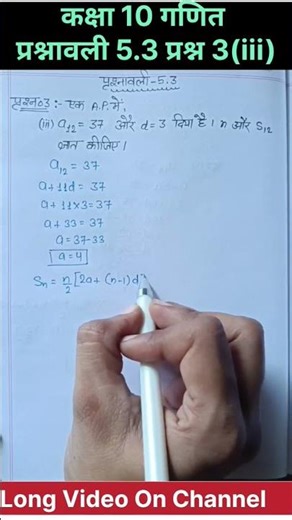 कक्षा 10 गणित
प्रश्नावली 5.3 प्रश्न 3(iii)
प्रश्नावली-5.3
प्रश्न03 :- एक A.P. में
(iii) a₁₂ = 37 और d = 3 दिया है। n और S₁₂
ज्ञात कीजिए।
a₁₂ = 37
a + 11d = 37
a + 11×3 = 37
a + 33 = 37
a = 37-33
a = 4
Sn = n/2 [2a + (n-1)d]
Long Video On Channel